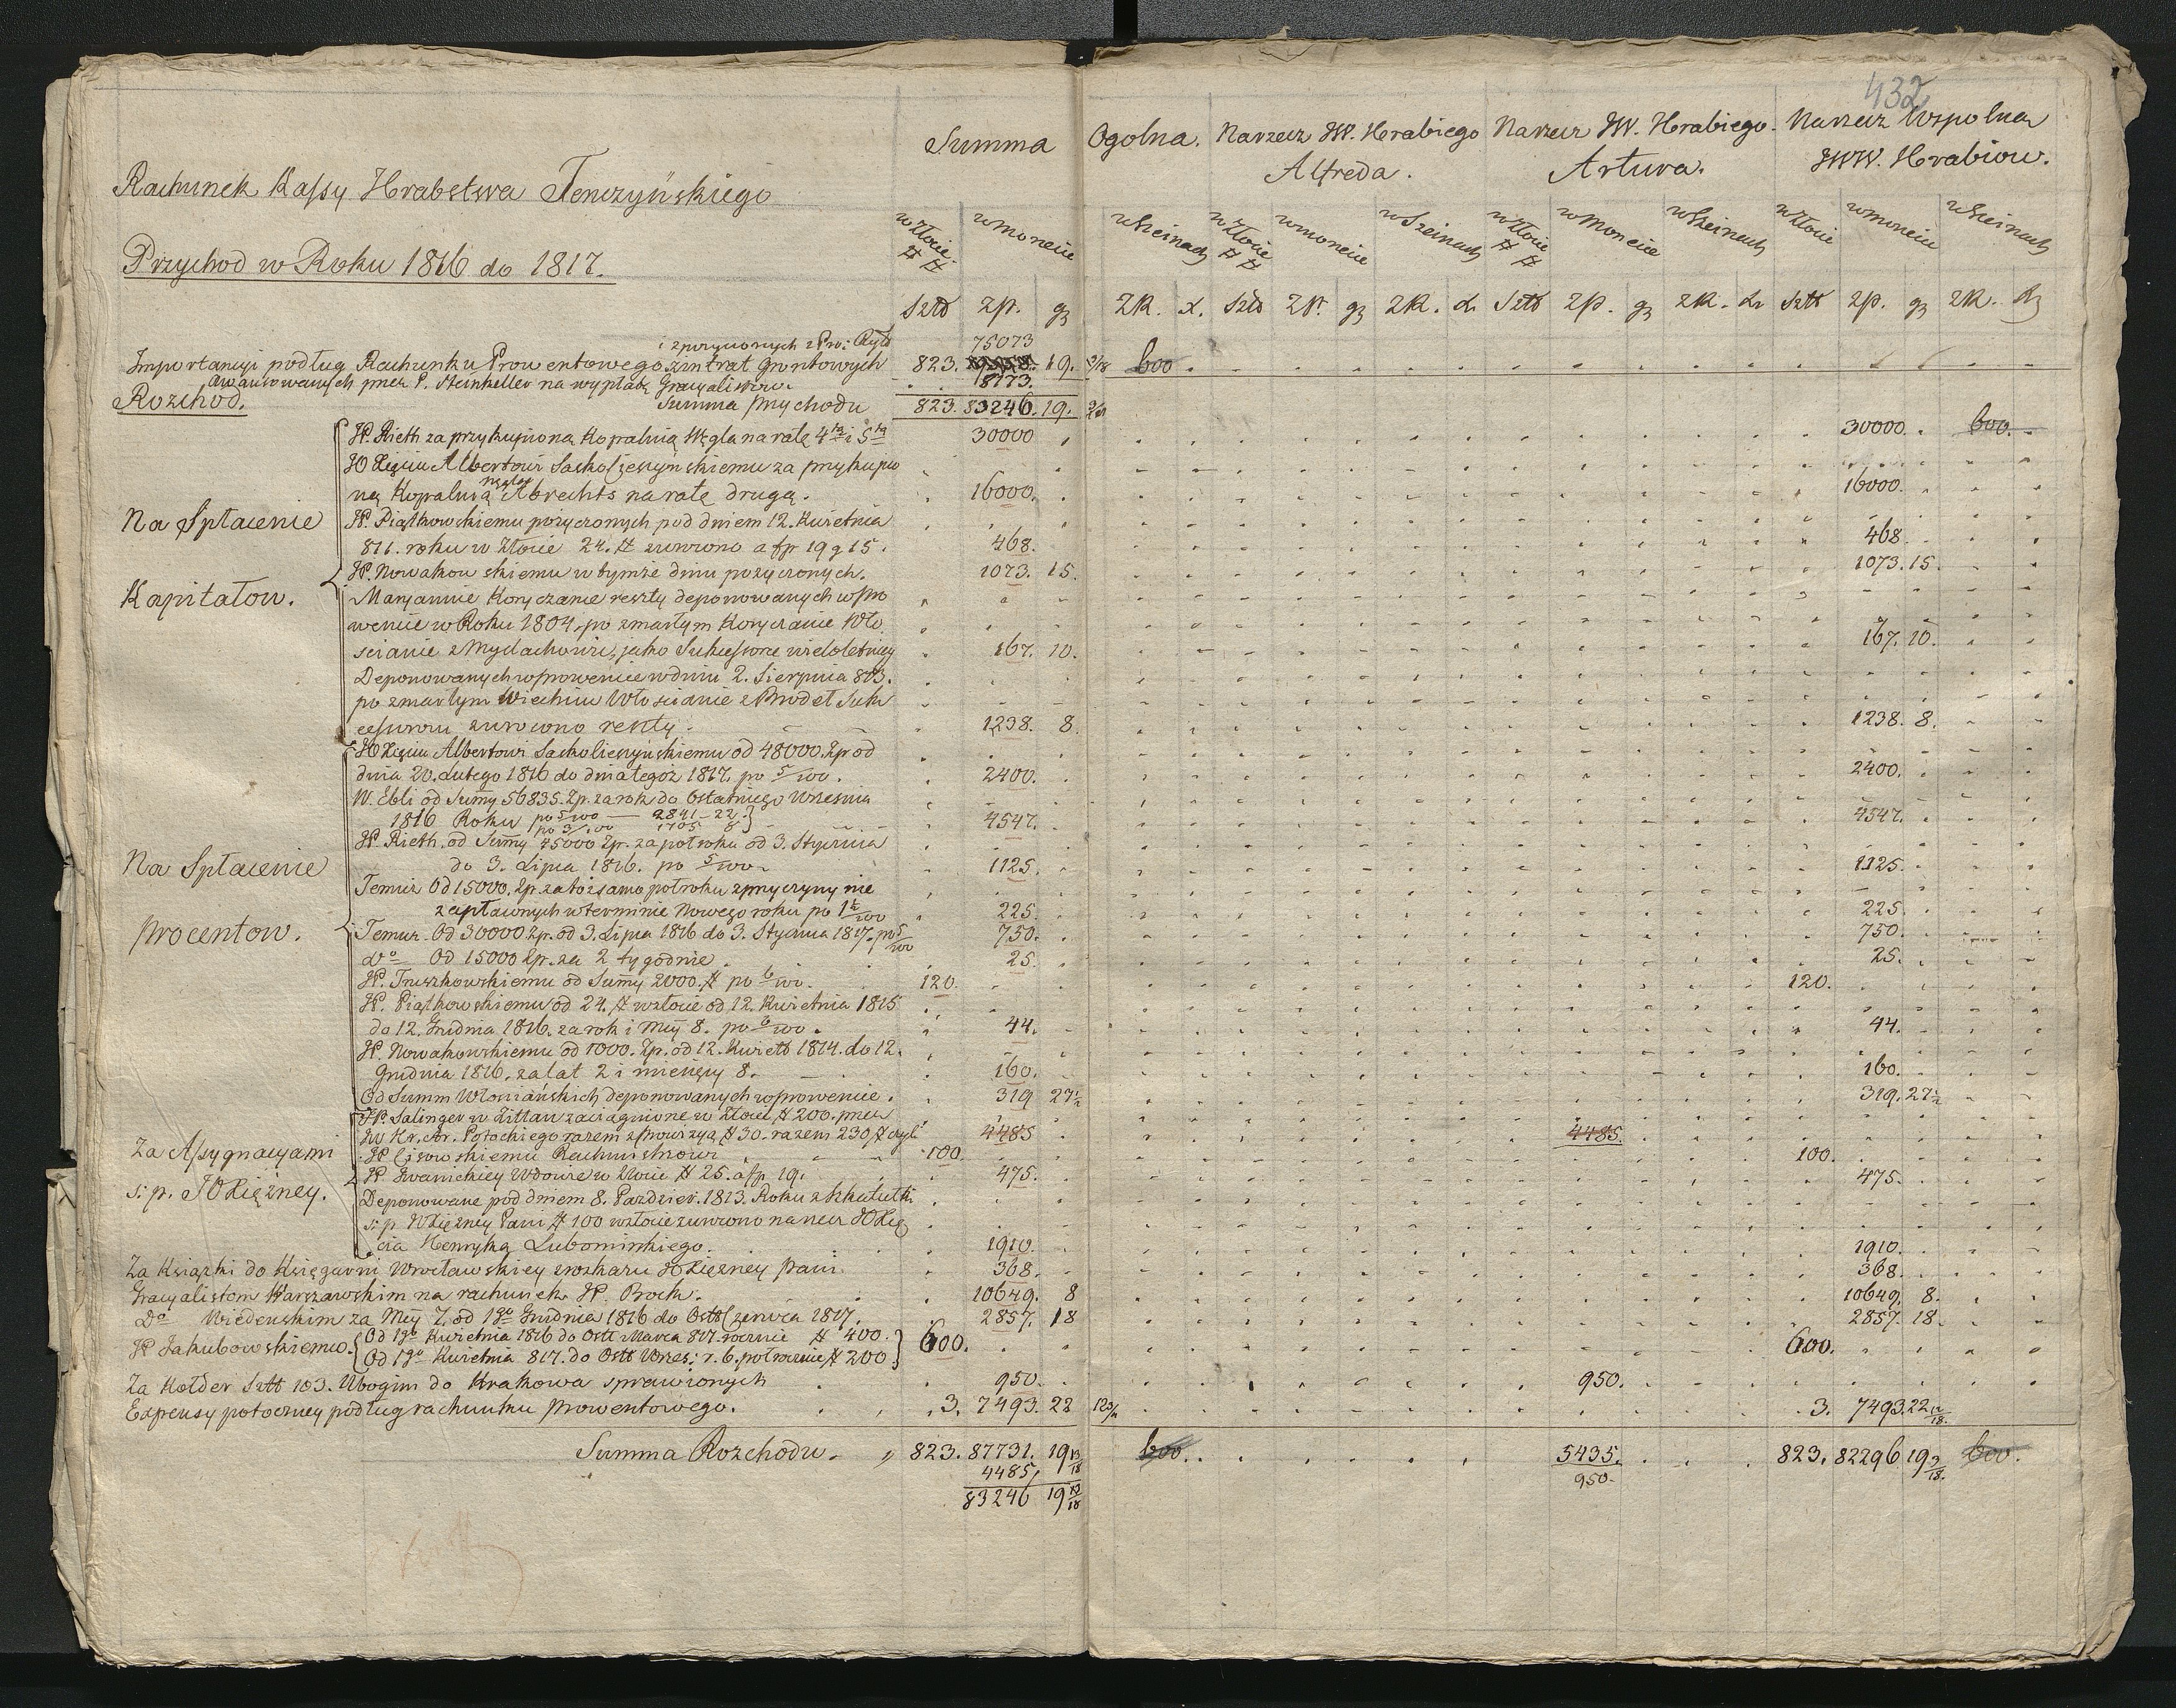 432
Summa Ogolna. Narzecz JW. Hrabiego Alfreda. Narzecz JW. Hrabiego Artura. Narzecz Wspolna JWW. Hrabiow.
Rachunek Kassy Hrabstwa Tenczyńskiego
w Złocie ## w Monecie w Szeinach w Złocie ## w monecie w Szeinach w Złocie ## w Monecie w Szeinach w Złocie w moncie w Szeinach
Przychod w Roku 1816 do 1817.
Sztd zp. g ZR. x. Sztd Zp. g ZR. x Sztd zp. g ZR. x Sztt zp. g ZR. x
75073
Importancyi podług Rachunku Prowentowego z intrat gruntowych 823. 19. 3/18 600
awansowanych przez P. Steinkeller na wypłatę Gracyalistow. 8173.
Rozchod. Summa przychodu 823. 83246. 19.
JP. Rieth za przykupioną Kopalnią Węgla na ratę 4tą i 5tą 30000 30000. 600.
JO Xięciu Albertowi Sasko Cieszyńskiemu za przykupio
ną Kopalnią węgla Albrechts na ratę drugą. 16000. 16000.
Na Spłacenie
JP. Piątkowskiemu pożyczonych pod dniem 12. Kwietnia
811. roku w Złocie 24. # zwrocono a fp 19 g 15. 468. 468.
JP. Nowakowskiemu w tymże dniu pożyczonych. 1073. 15. 1073. 15.
Kapitałow.
Maryannie Koryczanie reszty deponowanych w Pro
wencie w Roku 1804. po zmarłym Koryczanie Wło
scianie z Myslachowic, jako Sukcessorce nieletniey 167. 10. 167. 10.
Deponowanych w prowencie w dniu 2. Sierpnia 803.
po zmarłym Wiechciu Włoscianie z Brodet Suk
cessorow zwrocono reszty. 1238. 8 1238. 8.
JO Xięciu Albertowi Sasko Cieszyńskiemu od 48000. Zp od
dnia 20. Lutego 1816 do dnia tegoż 1817. po 5/100. 2400. 2400.
W. Ebli od Summy 56835. Zp. za rok do Ostatniego Wrzesnia
1816 Roku po 5/100 — 2841 – 22. po 3/100 1705 8 4547. 4547.
JP. Rieth. od Summy 45000 Zp. za poł roku od 3. Stycznia
do 3. Lipca 1816. po 5/100. 1125. 1125.
Na Spłacenie
Temuż Od 15000. Zp. za tożsamo połroku z przyczyny nie
zapłaconych w terminie Nowego roku po 1½/100 225. 225.
procentow.
Temuz Od 30000 Zp. od 3. Lipca 1816 do 3. Stycznia 1817. po 5/100 750. 750.
do Od 15000 Zp. za 2 tygodnie. 25. 25.
JP. Truszkowskiemu od Summy 2000. # po 6/100. 120. 120.
JP. Piątkowskiemu od 24. # w złocie od 12. Kwietnia 1815
do 12. Grudnia 1816. za rok i Miy 8. po 6/100. 44. 44.
JP. Nowakowskiemu od 1000. Zp. od 12. Kwiett 1814. do 12.
Grudnia 1816. za lat 2 i miesięcy 8. 160. 160.
Od Summ Włosciańskich deponowanych w prowencie. 319 27½ 319. 27½
JP. Salinger w Zittau zaciągnione w Złocie # 200. przez
W Kr. Ar. Potockiego razem z prowizyą # 30. razem 230 # czyli 4485 4485.
Za Assygnacyami
JP Cisowskiemu Rachmistrzowi 100. 100.
JP Iwanickiey Wdowie w Złocie # 25. a fp 19. 475. 475.
s: p. JO Xiężney.
Deponowane pod dniem 8. Pazdzier. 1813. Roku z Szkatułki
s: p JO Xiężney Pani # 100 w złocie zwrocono na rzecz JO Xię
cia Henryka Lubomirskiego. 1910. 1910.
Za Książki do Księgarni Wrocławskiey z rozkazu JO Xiężney Pani 368. 368.
Gracyalistom Warszawskim na rachunek JP. Bock. 10649. 8 10649. 8.
Do Wiedenskim za Miy 7. od 1go Grudnia 1816 do Ostt Czerwca 1817. 2857. 18 2857. 18.
JP Jakubowskiemu. Od 1go Kwietnia 1816 do Ostt Marca 817. rocznie # 400. 600. 600.
Od 1go Kwietnia 817. do Ostt Wrzes: r. b. połrocznie # 200
Za Kołder Sztt 103. Ubogim do Krakowa sprawionych 950. 950.
Expensy potoczney podług rachunku prowentowego. 3. 7493. 22 3. 7493. 22 12/18.
Summa Rozchodu. 823. 87731. 19 13/18 600. 5435. 823. 82296 19 3/18. 600.
4485, 950.
83246 19 13/18